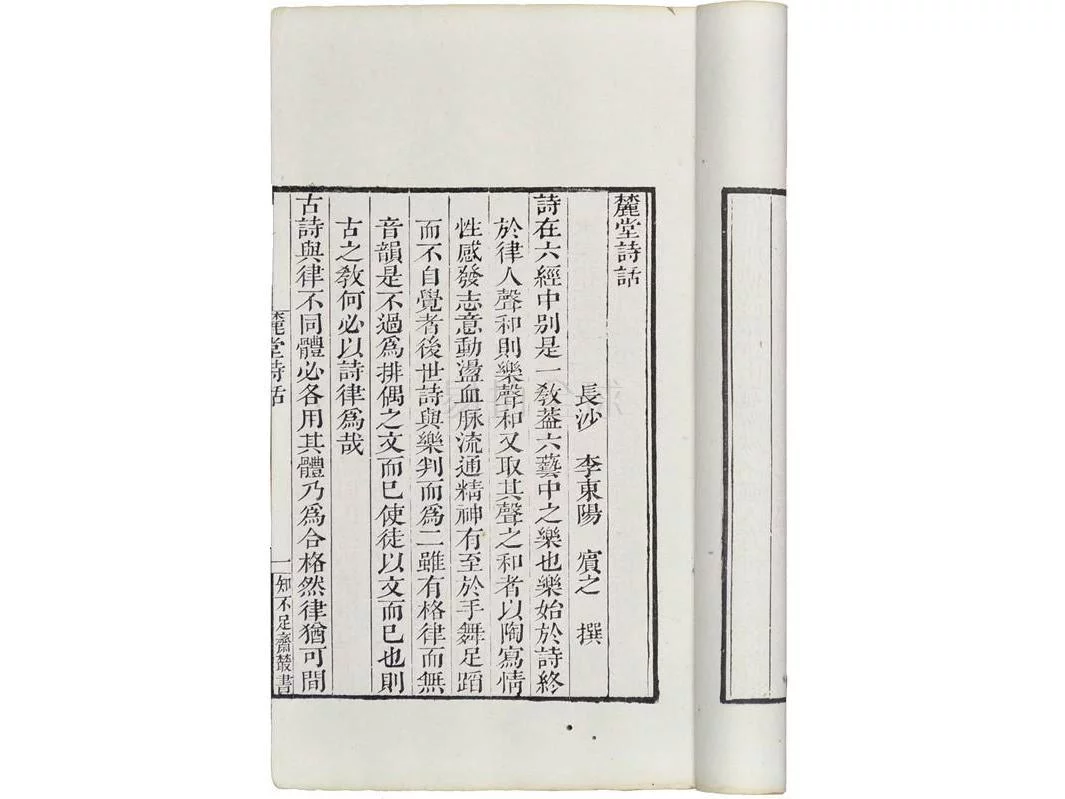 麓堂詩話
長沙 李東陽 賓之 撰
詩在六經中别是一敎葢六藝中之樂也樂始於詩終
於律人聲和則樂聲和又取其聲之和者以陶寫情
性感發志意動盪血脈流通精神有至於手舞足蹈
而不自覺者後世詩與樂判而爲二雖有格律而無
音韻是不過爲排偶之文而已使徒以文而已也則
古之敎何必以詩律爲哉
古詩與律不同體必各用其體乃爲合格然律猶可間
麓堂詩話
一
知不足齋叢書